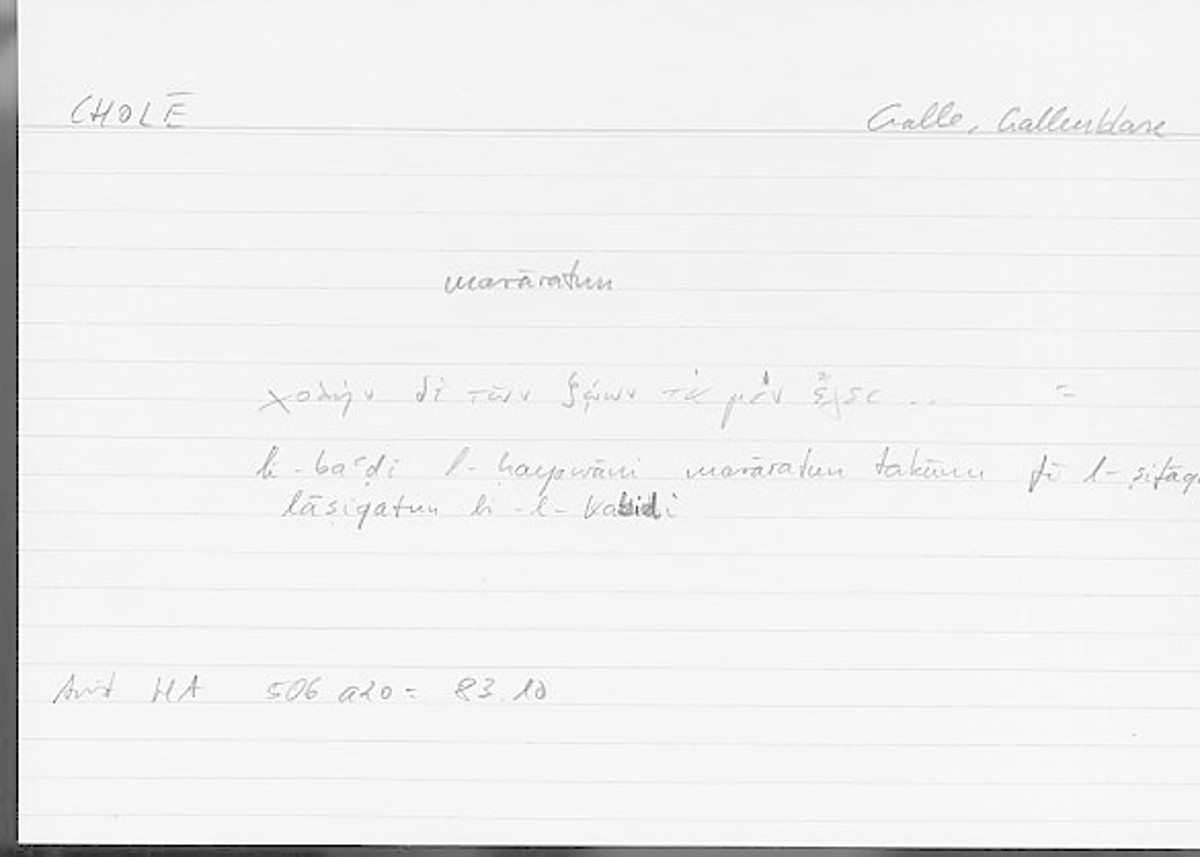 CHOLĒ
Galle, Gallenblase
marāratun
χολὴν δὲ τῶν ζῴων τὰ μὲν ἔχει .. =
li-baʿḍi l-ḥayawāni marāratun takūnu fī l-ṣifāq
lāṣiqatun bi-l-kabidi
Arist HA 506 a20 = 83.10